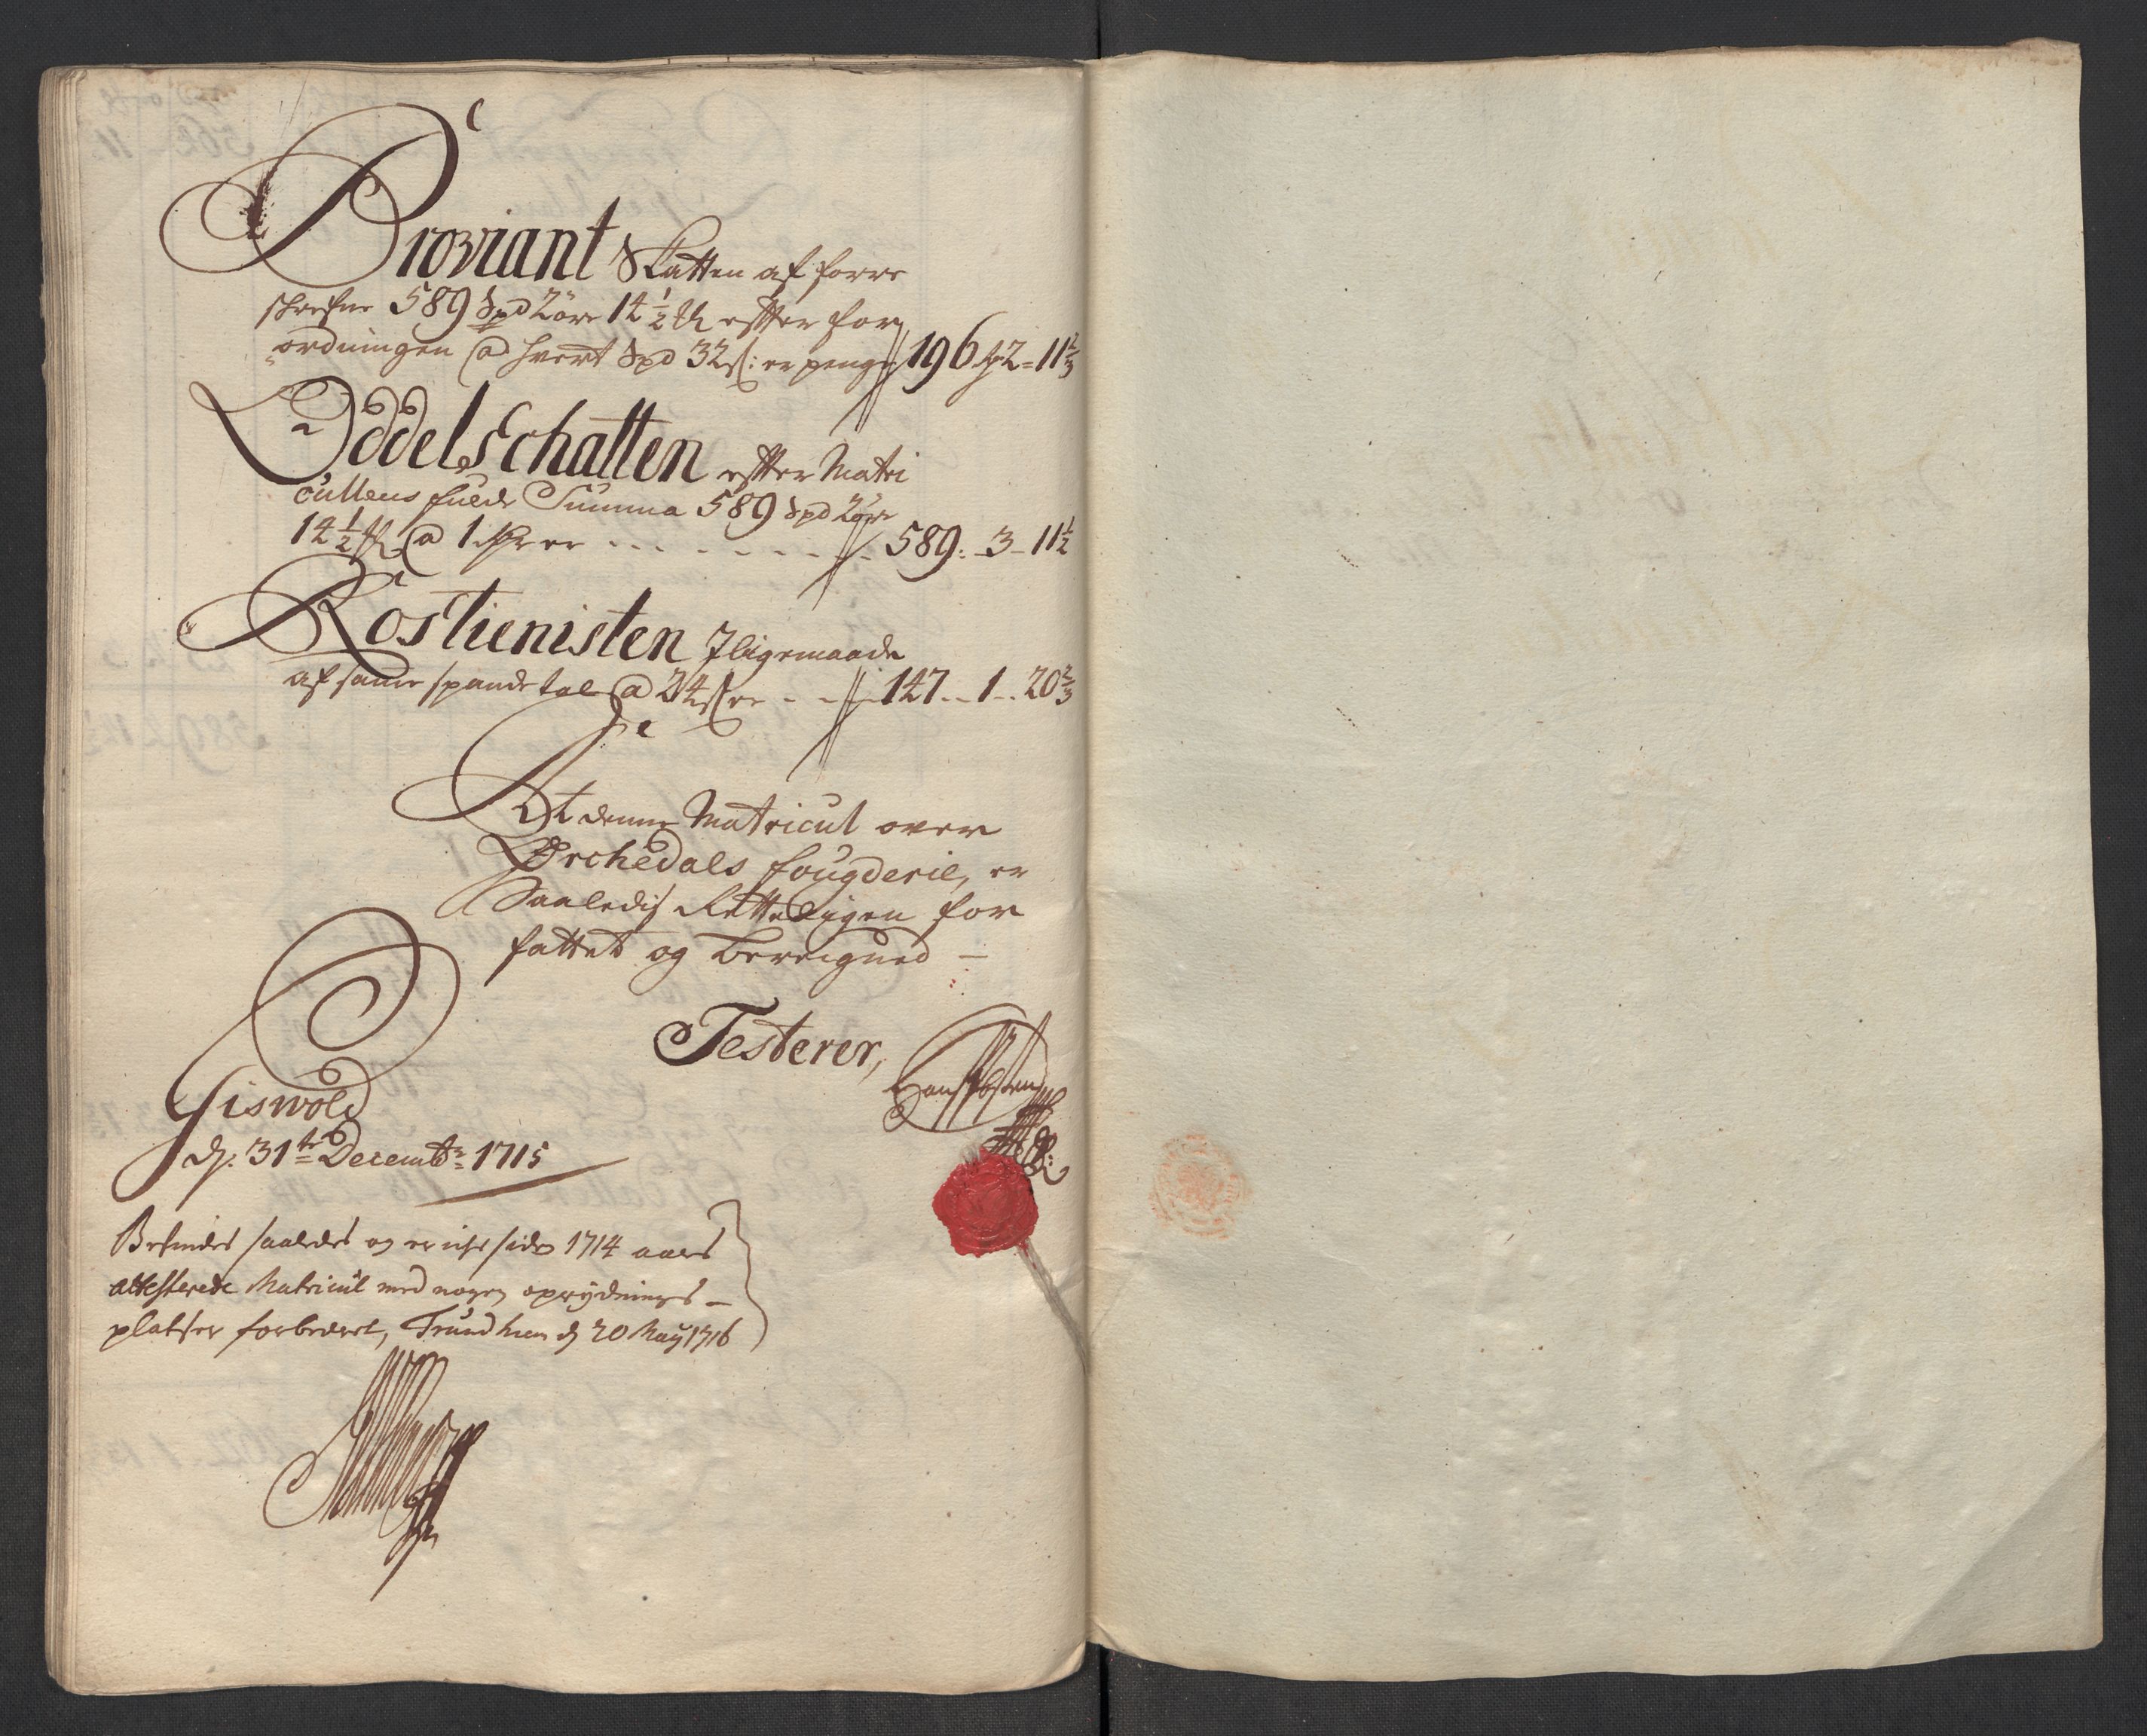 Proviant Skatten af forre
skrefne 589 Spd 2 öre 14 1/2 ℔ efter for
ordningen @ hvert Spd 32 s: er penge 196 - 2 - 11 2/3
Oddel Schatten efter Matri
cullens fulde Summa 589 Spd 2 öre
14 1/2 ℔ @ 1 er 589: - 3 - 11 1/2
Rostienisten Jligemaade
af same spande tal @ 24 s er 147 - 1 - 20 2/3
At denne Matricul over
Ørchedals fougderie, er
Saaledis Rettelligen for
fattet og Bereigned —
Testerer,
Giswold
d. 31te Decembr: 1715
Befindes saaledes og er ichs siden 1714 aars
attesterede Matricul med nogen oprydnings -
platser forbedret, Trundhiem d 20 Maij 1716